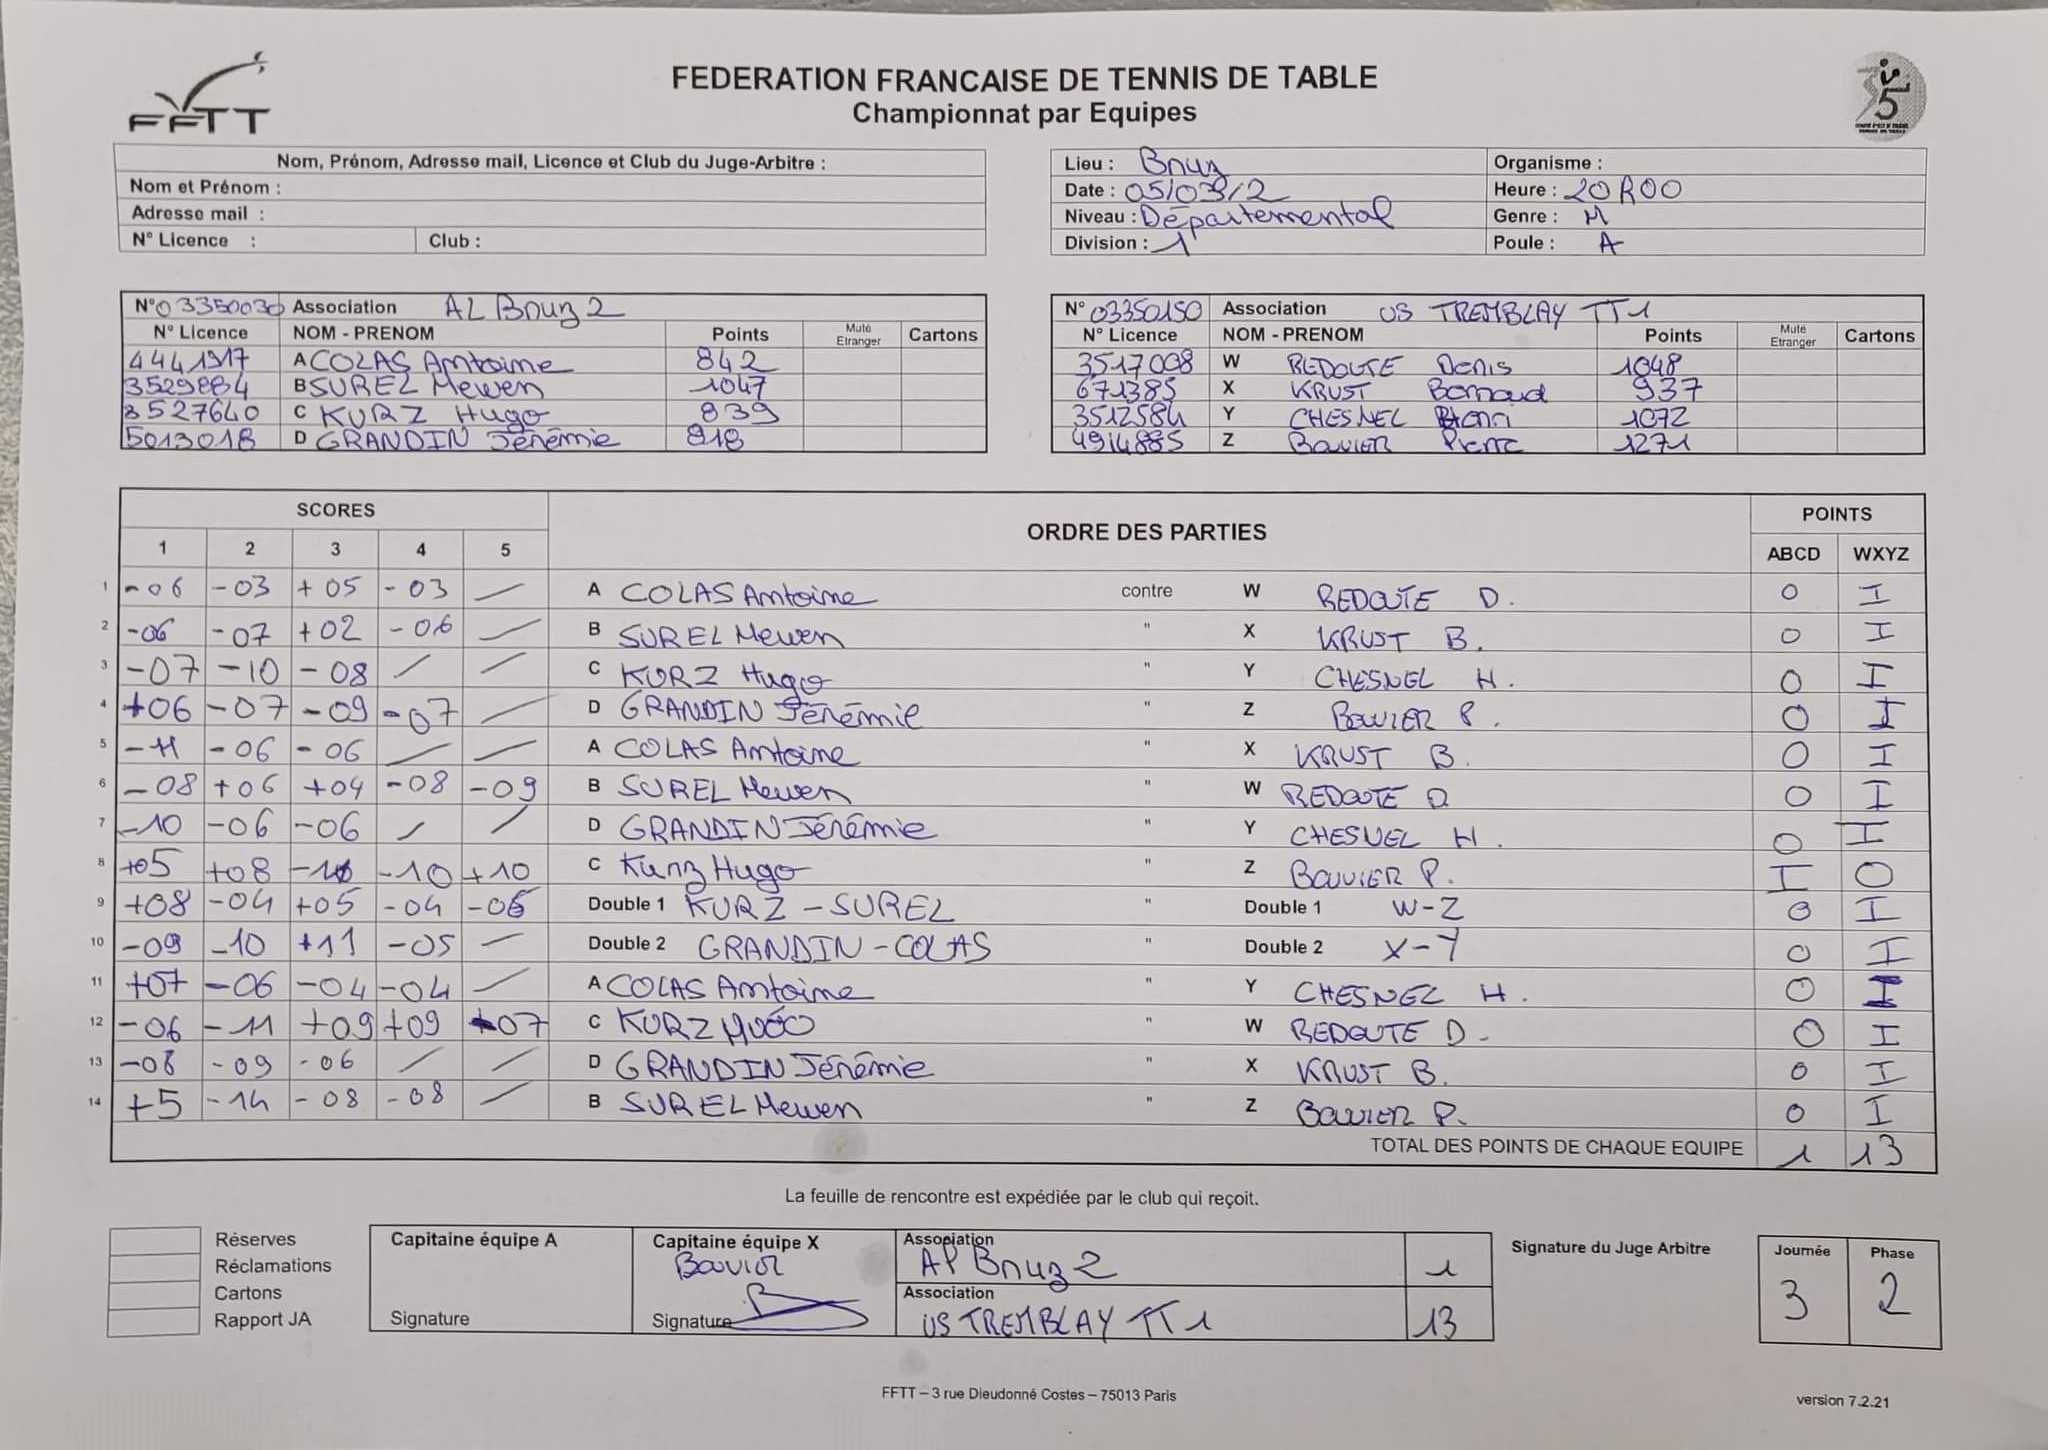 FFTT
FEDERATION FRANCAISE DE TENNIS DE TABLE
Championnat par Equipes
Nom, Prénom, Adresse mail, Licence et Club du Juge-Arbitre :
Nom et Prénom :
Adresse mail :
N° Licence : Club :
Lieu : Bruz Organisme :
Date : 05/03/2 Heure : 20h00
Niveau : Départemental Genre : M
Division : 1 Poule : A
N° 03350030 Association AL Bruz 2
N° Licence NOM - PRENOM Points Muté Etranger Cartons
4441917 A COLAS Antoine 842
3529884 B SUREL Mewen 1047
3527640 C KURZ Hugo 839
5013018 D GRANDIN Jérémie 918
N° 03350150 Association US TREMBLAY TT 1
N° Licence NOM - PRENOM Points Muté Etranger Cartons
3517098 W REDOUTE Denis 1048
671385 X KRUST Bernard 937
3512584 Y CHESNEL Henri 1072
4914885 Z BOUVIER Pierre 1271
SCORES ORDRE DES PARTIES POINTS
1 2 3 4 5 ABCD WXYZ
1 -06 -03 +05 -03 / A COLAS Antoine contre W REDOUTE D. 0 I
2 -06 -07 +02 -06 / B SUREL Mewen " X KRUST B. 0 I
3 -07 -10 -08 / / C KURZ Hugo " Y CHESNEL H. 0 I
4 +06 -07 -09 -07 / D GRANDIN Jérémie " Z BOUVIER P. 0 I
5 -11 -06 -06 / / A COLAS Antoine " X KRUST B. 0 I
6 -08 +06 +04 -08 -09 B SUREL Mewen " W REDOUTE D 0 I
7 -10 -06 -06 / / D GRANDIN Jérémie " Y CHESNEL H. 0 I
8 +05 +08 -10 +10 C Kurz Hugo " Z BOUVIER P. I O
9 +08 -04 +05 -04 -06 Double 1 KURZ - SUREL " Double 1 W-Z 0 I
10 -09 -10 +11 -05 - Double 2 GRANDIN - COLAS " Double 2 X-Y 0 I
11 +07 -06 -04 -04 / A COLAS Antoine " Y CHESNEL H. 0 I
12 -06 -11 +09 +09 -07 C KURZ HUGO " W REDOUTE D. 0 I
13 -08 -09 -06 / / D GRANDIN Jérémie " X KRUST B. 0 I
14 +5 -14 -08 -08 / B SUREL Mewen " Z BOUVIER P. 0 I
TOTAL DES POINTS DE CHAQUE EQUIPE 1 13
La feuille de rencontre est expédiée par le club qui reçoit.
Réserves
Réclamations
Cartons
Rapport JA
Capitaine équipe A
Signature
Capitaine équipe X
Bouvier
Signature
Association
AL Bruz 2 1
Association
US TREMBLAY TT 1 13
Signature du Juge Arbitre
Journée Phase
3 2
FFTT – 3 rue Dieudonné Costes – 75013 Paris
version 7.2.21